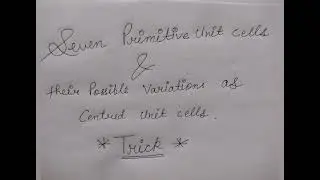 Seven Primitive Unit cells
&
their Possible Variations as
Centred Unit cells.
* Trick *